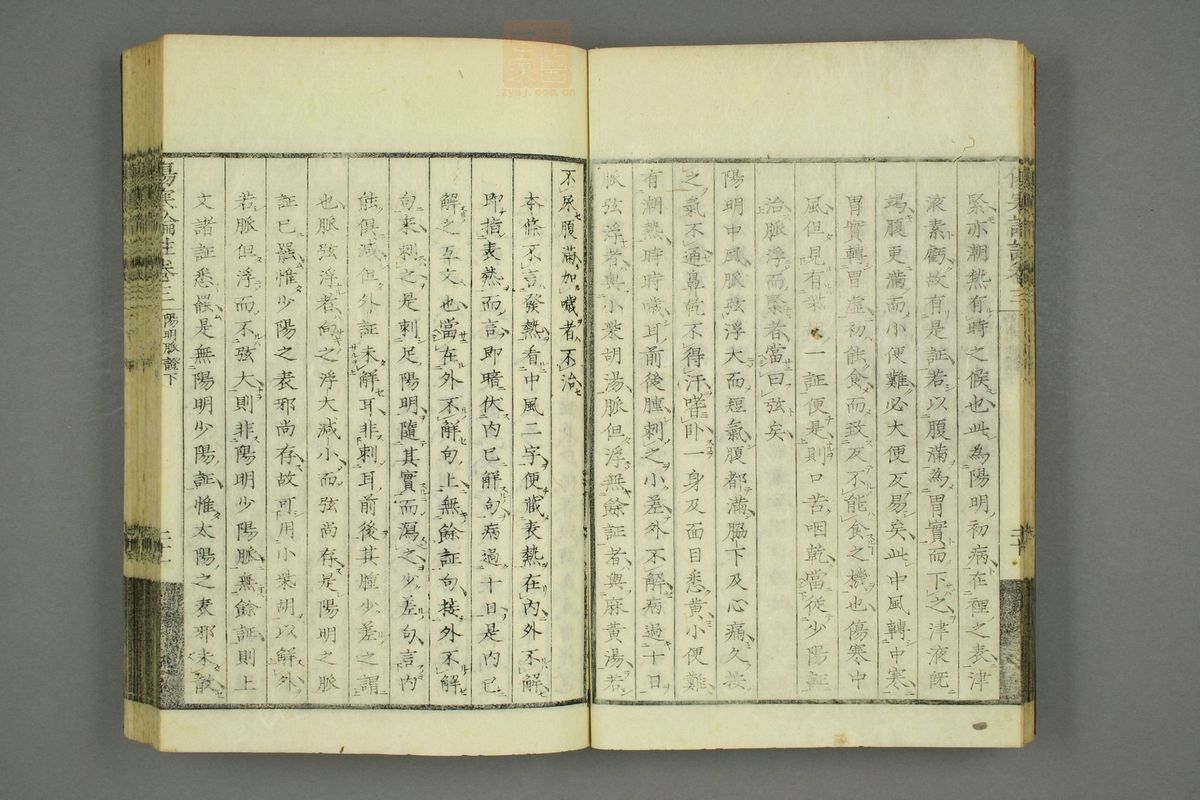 緊亦潮熱有時之候也此為陽明初病在裡之表津
液素虧故有是証若以腹滿為胃實而下之津液既
竭腹更滿而小便難必大便反易矣此中風轉中寒
胃實轉胃虛初能食而致反不能食之機也傷寒中
風但見有柴一証便是則口苦咽乾當從少陽証
治脈浮而緊者當曰弦矣
陽明中風脈弦浮大而短氣腹都滿脇下及心痛久按
之氣不通鼻乾不得汗嗜卧一身及面目悉黃小便難
有潮熱時時噦耳前後腫刺之小差外不解病過十日
脈弦浮者與小柴胡湯脈但浮無餘証者與麻黃湯若
不尿腹滿加噦者不治
本條不言發熱看中風二字便藏表熱在內外不解
即指表熱而言即暗伏內已解句病過十日是內已
解之互文也當在外不解句上無餘証句接外不解
句来刺之是刺足陽明隨其實而瀉之少差句言內
能俱減但外証未解耳非刺耳前後其腫少差之謂
也脈弦浮者向之浮大減小而弦尚存是陽明之脈
証已罷惟少陽之表邪尚存故可用小柴胡以解外
若脈但浮而不弦大則非陽明少陽脈無餘証則上
文諸証悉罷是無陽明少陽証惟太陽之表邪未散
傷寒論註卷三
陽明脈證下
二十一